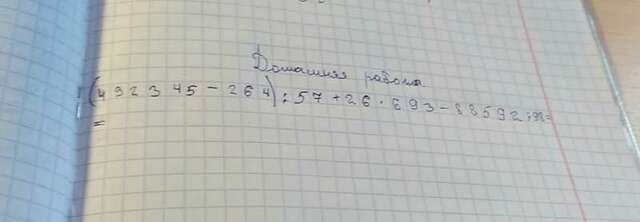 Домашняя работа
(492345-264):57+26·693-88592:98=
=